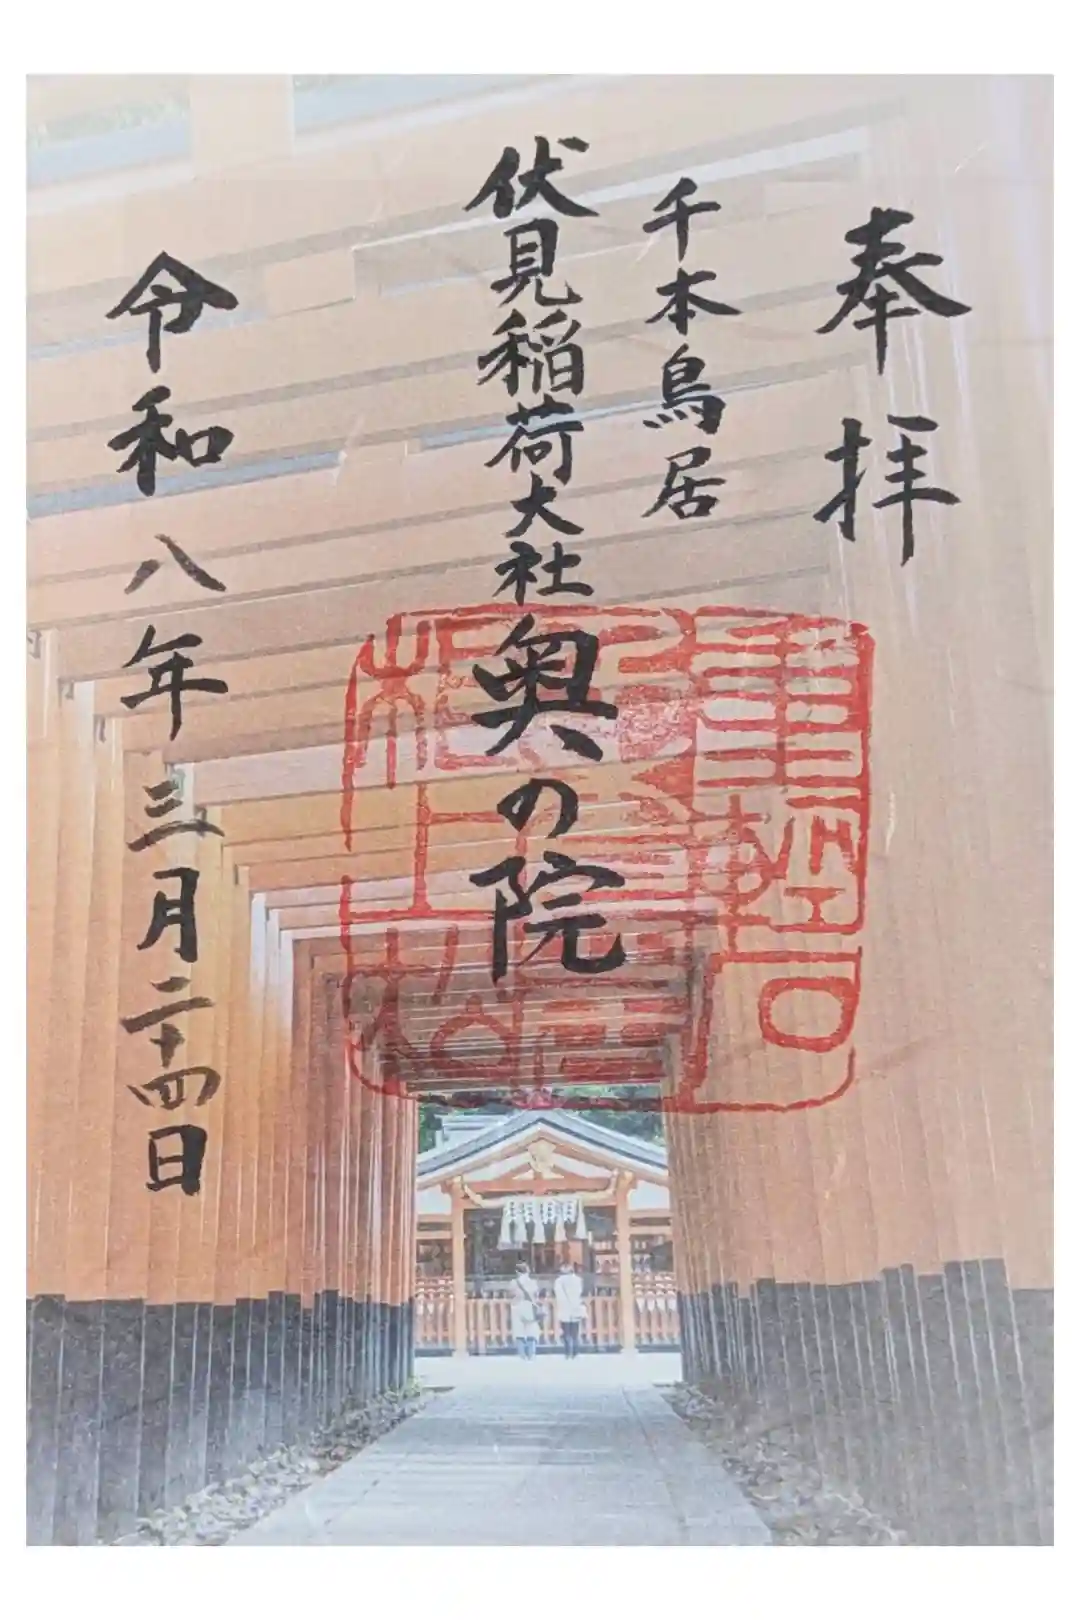 奉拝
千本鳥居
伏見稲荷大社奥の院
令和八年三月二十四日